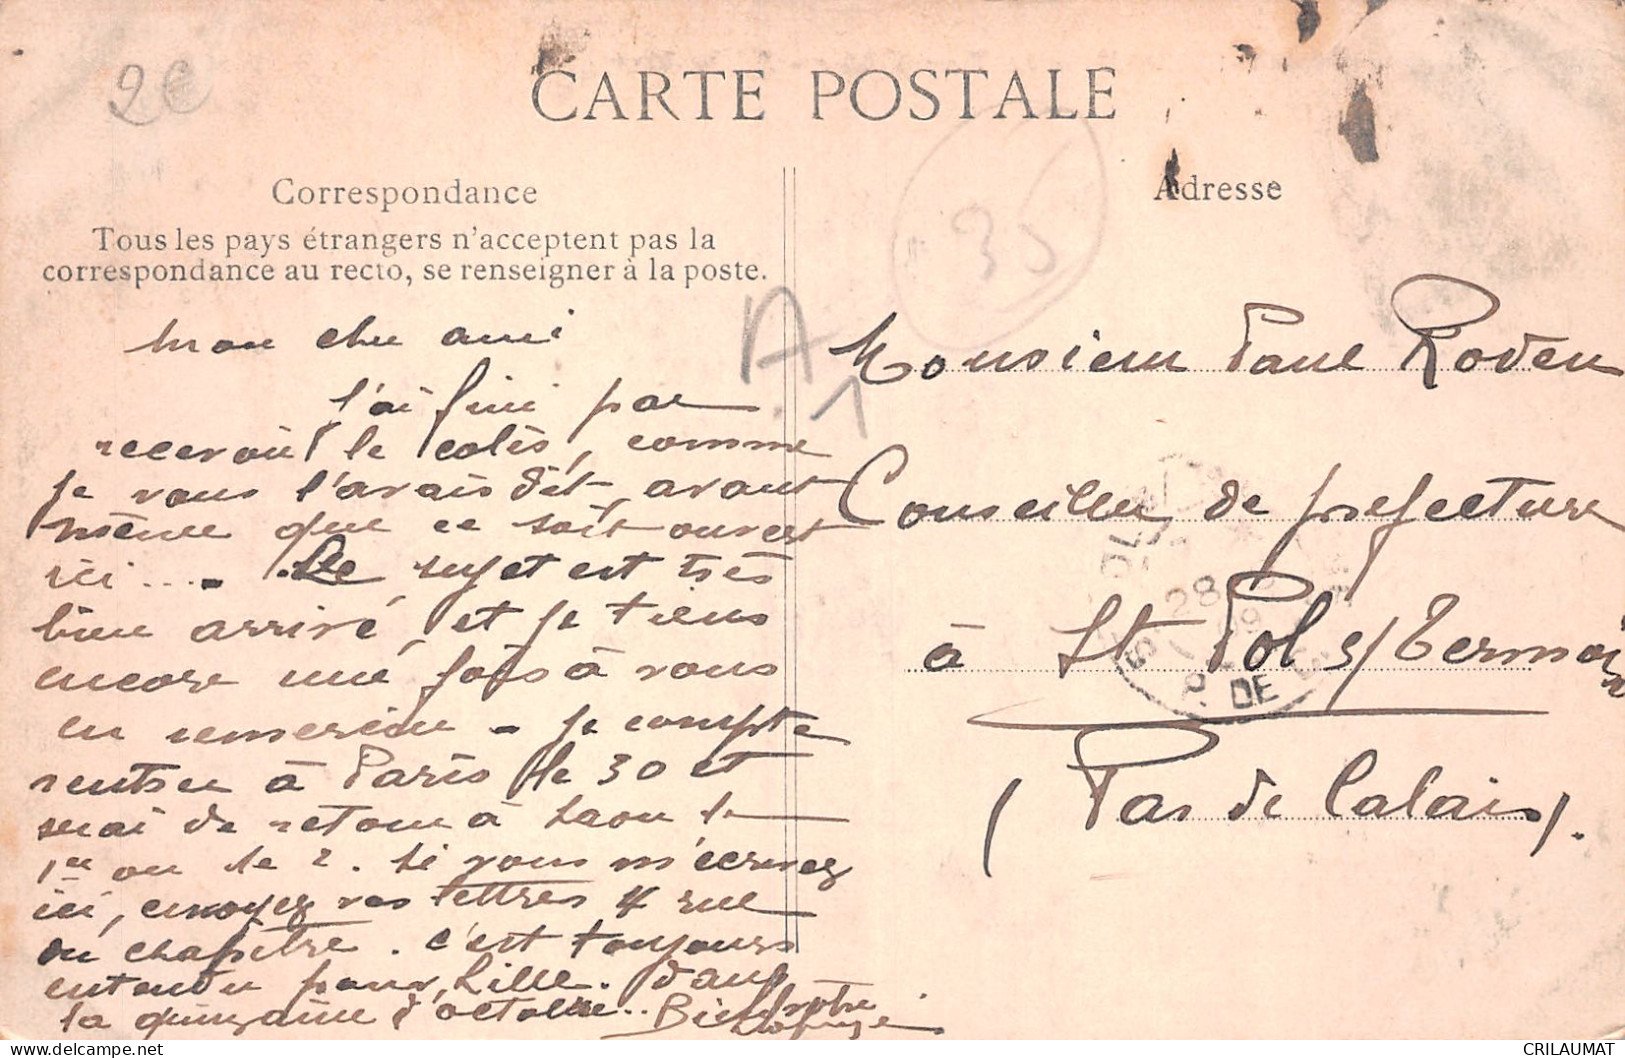 2€
CARTE POSTALE
Correspondance
Tous les pays étrangers n'acceptent pas la
correspondance au recto, se renseigner à la poste.
mon cher ami
J'ai fini par
recevoir le colis, comme
je vous l'avais dit, avant
même que ce soit ouvert
ici .... Le sujet est très
bien arrivé, et je tiens
encore une fois à vous
en remercier - Je compte
rentrer à Paris le 30 et
serai de retour à Laon le
1er ou le 2. Si vous m'écrivez
ici, envoyez vos lettres 4 rue
du chapitre. C'est toujours
entendu pour Lille. dans
la quinzaine d'octobre. Bien votre
A
1
35
Adresse
Monsieur Paul Roden
Conseiller de préfecture
à St Pol s/ Ternoise
(Pas de Calais).
28
DE
CRILAUMAT